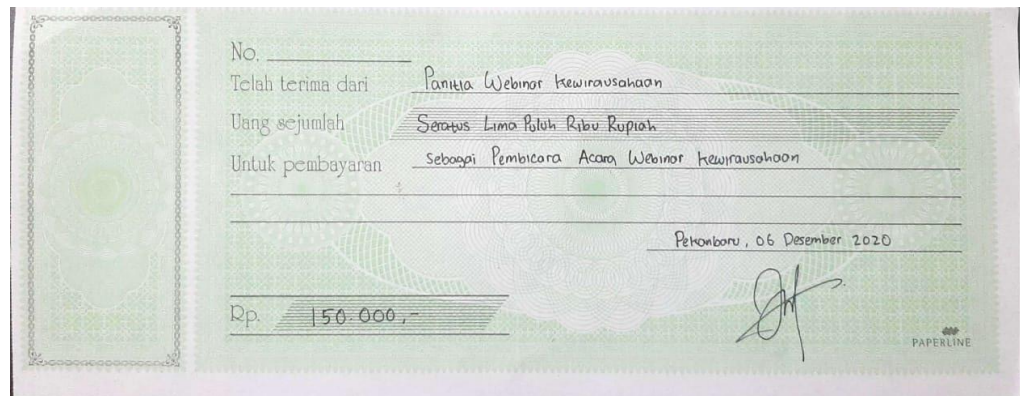 No.
Telah terima dari Panitia Webinar Kewirausahaan
Uang sejumlah Seratus Lima Puluh Ribu Rupiah
Untuk pembayaran Sebagai Pembicara Acara Webinar Kewirausahaan
Pekanbaru, 06 Desember 2020
Rp. 150.000,-
PAPERLINE